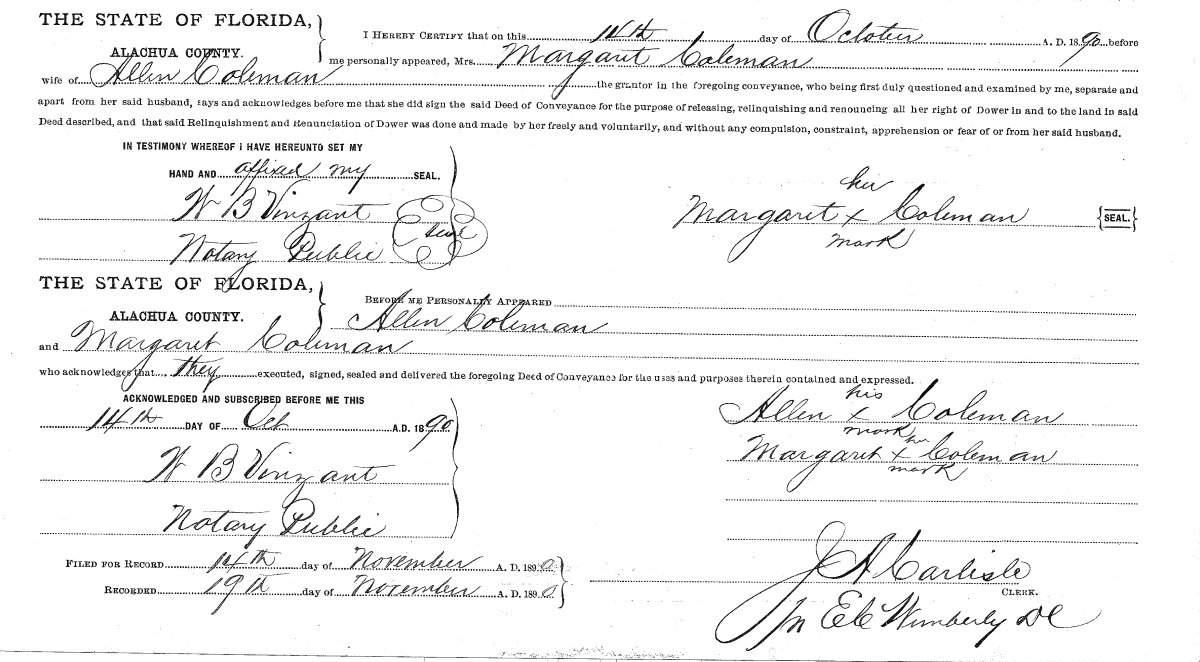 THE STATE OF FLORIDA,
ALACHUA COUNTY.
I HEREBY CERTIFY that on this 14th day of October A. D. 1890 before
me personally appeared, Mrs. Margaret Coleman
wife of Allen Coleman the grantor in the foregoing conveyance, who being first duly questioned and examined by me, separate and
apart from her said husband, says and acknowledges before me that she did sign the said Deed of Conveyance for the purpose of releasing, relinquishing and renouncing all her right of Dower in and to the land in said
Deed described, and that said Relinquishment and Renunciation of Dower was done and made by her freely and voluntarily, and without any compulsion, constraint, apprehension or fear of or from her said husband.
IN TESTIMONY WHEREOF I HAVE HEREUNTO SET MY
HAND AND affixed my SEAL.
W B Vinzant
Notary Public
Seal
her
Margaret x Coleman {SEAL.}
mark
THE STATE OF FLORIDA,
ALACHUA COUNTY.
BEFORE ME PERSONALLY APPEARED
Allen Coleman
and Margaret Coleman
who acknowledges that they executed, signed, sealed and delivered the foregoing Deed of Conveyance for the uses and purposes therein contained and expressed.
ACKNOWLEDGED AND SUBSCRIBED BEFORE ME THIS
14th DAY OF Oct A.D. 1890
W B Vinzant
Notary Public
his
Allen x Coleman
mark her
Margaret x Coleman
mark
FILED FOR RECORD 14th day of November A. D. 1890
RECORDED 19th day of November A. D. 1890
J A Carlisle
CLERK.
Wimberly DC